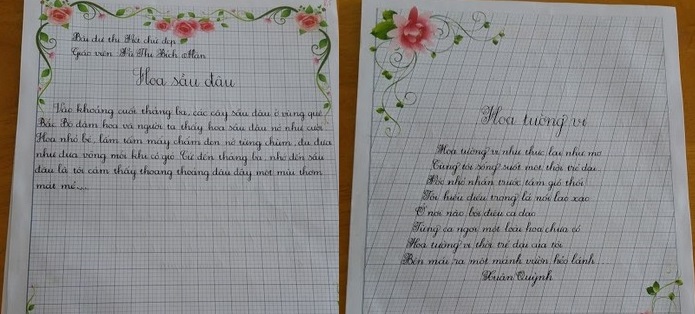 Bài dự thi Viết chữ đẹp
Giáo viên Hà Thị Bích Mận
Hoa sầu đâu
Vào khoảng cuối tháng ba, các cây sầu đâu ở vùng quê
Bắc Bộ đâm hoa và người ta thấy hoa sầu đâu nở như cười.
Hoa nhỏ bé, lấm tấm mấy chấm đen nở từng chùm, đu đưa
như đưa võng mỗi khi có gió. Cứ đến tháng ba, nhớ đến sầu
đâu là tôi cảm thấy thoang thoảng đâu đây một mùi thơm
mát mẻ....
Hoa tường vi
Hoa tường vi như thực lại như mơ
Từng tôi sống suốt một thời trẻ dại
nhỏ nhắn trước tấm gió thổi
Tôi hiểu điều trong là nỗi lao xao
Ở nơi nào bởi điệu ca dao
Từng ca ngợi một loài hoa chưa có
Hoa tường vi thời trẻ dại của tôi
Bên mái ra một mảnh vườn héo lánh ...
Xuân Quỳnh